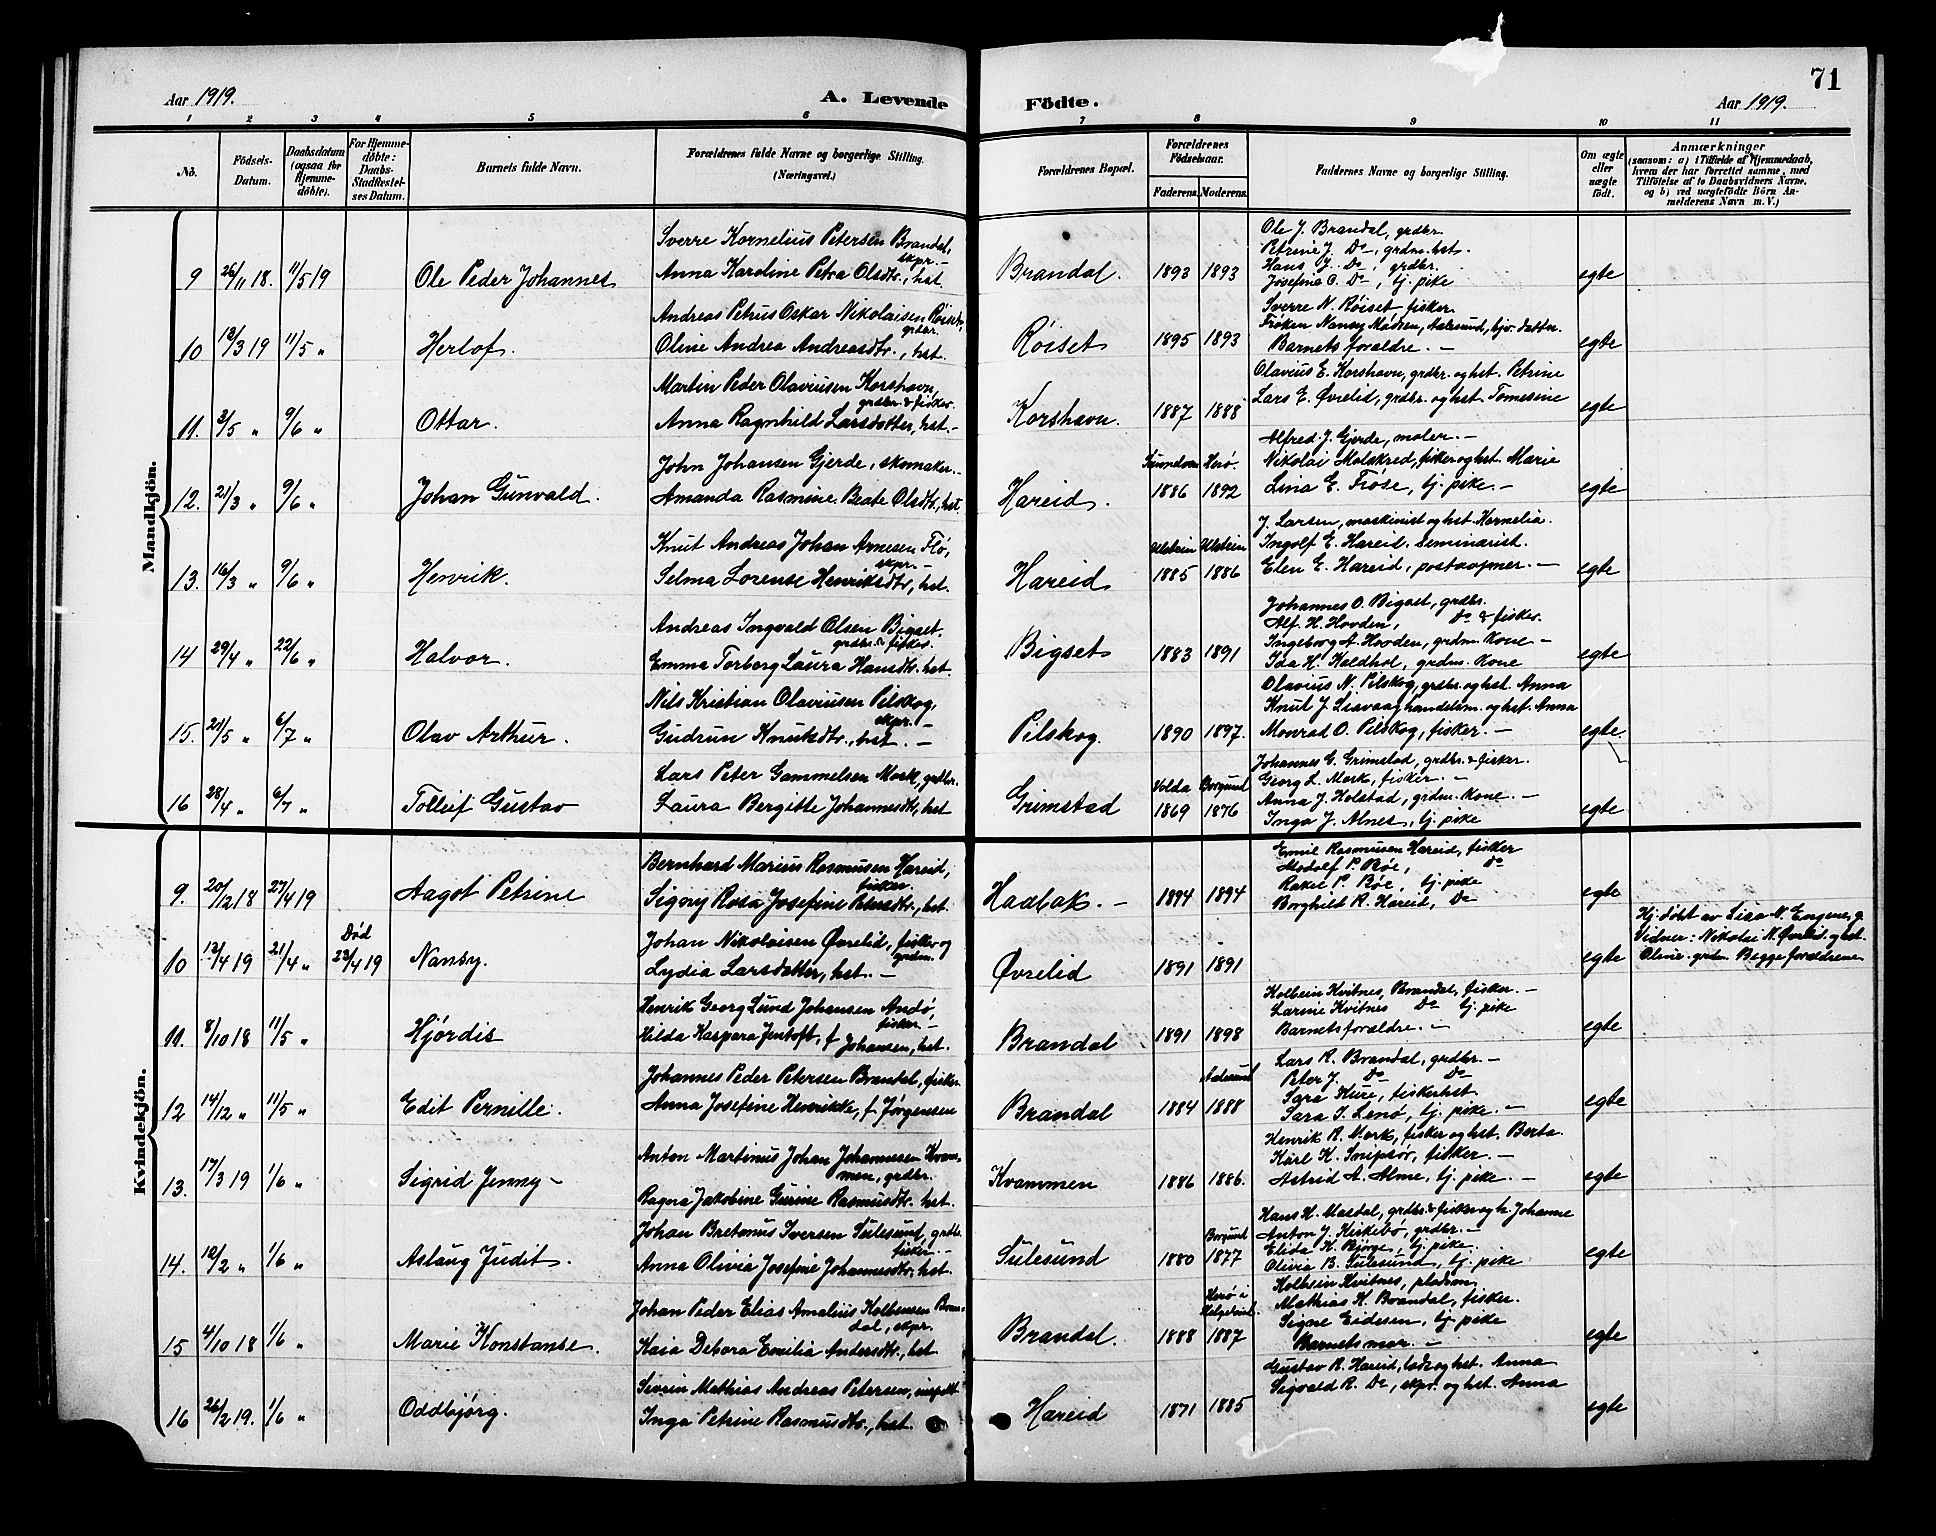 71
Aar 1919. A. Levende Födte. Aar 1919.
1 2 3 4 5 6 7 8 9 10 11
No. Födsels-Datum. Daabsdatum (ogsaa for Hjemme-döbte). For Hjemme-döbte: Daabs-Stadfæstelses Datum. Barnets fulde Navn. Forældrenes fulde Navne og borgerlige Stilling. (Næringsvei.) Forældrenes Bopæl. Forældrenes Födselsaar. Faderens. Moderens. Faddernes Navne og borgerlige Stilling. Om ægte eller uægte födt. Anmærkninger (saasom: a) i Tilfælde af Hjemmedaab, hvem der har forrettet samme, med Tilföielse af to Daabsvidners Navne, og b) ved uægtefödte Börn Anmelderens Navn m. V.)
Mandkjön.
Sverre Kornelius Petersen Brandal, skpr.- Ole J. Brandal, grdbr.
Petrine J. Do, grdm. hst.
9 26/11 18. 11/5 19 Ole Peder Johannes Anna Karoline Petra Olsdtr., hst. Brandal. 1893 1893 Hans J. Do, grdbr. egte
Josefine O. Do, tj. pike
Andreas Petrus Oskar Nikolaisen Röiset, grdbr. Sverre N. Röiset fisker
Fröken Nansy Madsen, Aalesund, bjv. datter
10 12/3 19 11/5 " Herlof. Oline Andrea Andreasdtr., hst. Röiset 1895 1893 Barnets foraldre. - egte
Martin Peder Olaviusen Korshavn, grdbr & fisker. Olavius E. Korshavn, grdbr. og hst. Petrine
11. 3/5 " 9/6 " Ottar. Anna Ragnhild Larsdatter, hst.- Korshavn. 1887 1888 Lars E. Øvrelid, grdbr. og hst. Tomesine egte
John Johansen Gjerde, skomaker.- Sunnelven Herö. Alfred J. Gjerde, maler.-
Nikolai Molskred, fisker og hst. Marie
12. 21/3 " 9/6 " Johan Gunvald. Amanda Rasmine Beate Olsdtr., hst Hareid. 1886 1892 Lina E. Fröse, tj. pike.- egte
Knut Andreas Johan Arnesen Flö, skpr.- Ulstein Ulstein J. Larsen, maskinist og hst. Kornelia.
Ingolf E. Hareid. Seminarist.
13. 16/3 " 9/6 " Henrik. Selma Lorense Henriksdtr., hst. Hareid 1885 1886 Elen E. Hareid, postaapner.- egte
Andreas Ingvald Olsen Bigset, grdbr. & fisker. Johannes O. Bigset, grdbr.
Alf. H. Hovden, Do & fisker.
14 29/4 " 22/6 " Halvor. Emma Torborg Laura Hansdtr. hst. Bigset 1883 1891 Ingeborg A. Hovden, grdm. Kone - egte
Ida K. Koldhol, grdm. Kone
Nils Kristian Olaviusen Pilskog, skpr.- Olavius N. Pilskog, grdbr. og hst. Anna
Knut J. Liavaag handelsm. og hst. Anna
15. 21/5 " 6/7 " Olav Arthur. Gudrun Knutsdtr., hst.- Pilskog. 1890 1897. Monrad O. Pilskog, fisker.- egte
Lars Peter Gammelsen Mork, grdbr. Volda Borgund Johannes G. Grimstad, grdbr. & fisker.
Georg L. Mork, fisker.-
16 28/4 " 6/7 " Tolleif Gustav Laura Bergitte Johannesdtr., hst Grimstad 1869 1876 Anna J. Holstad, grdm. Kone.- egte
Inga J. Alnes, tj. pike
Kvindekjön.
Bernhard Marius Rasmusen Hareid, fisker. Emil Rasmusen Hareid, fisker
Modolf P. Röe, Do
9. 20/12 18 27/4 19 Aagot Petrine Signy Rosa Josefine hst. 1894 1894 Rakel P. Röe, tj. pike egte
Borghild R. Hareid, Do
Död Johan Nikolaisen Øvrelid, fisker og grdm. Hj. döbt av
10 12/4 19 21/4 " 23/4 19 Nansy. Lydia Larsdatter, hst.- Øvrelid 1891 1891 egte Vidner: Nikolai N. Øvrelid og hst.
Oline. grdm. Begge forældrene
Henrik Georg Lund Johansen Andö, fisker.- Kolbein Kvitnes, Brandal, fisker.-
Larine Kvitnes Do tj. pike
11. 8/10 18 11/5 " Hjördis Hilda Kaspara Jentoft, f Johansen, hst. Brandal 1891 1898 Barnets foraldre.- egte
Johannes Peder Petersen Brandal, fisker. Aalesund Lars R. Brandal, grdbr.-
Peter J. Do Do
12 14/12 " 11/5 " Edit Pernille. Anna Josefine Henrikke, f Jørgensen Brandal 1884 1888 Sara Kure, fisker hst egte
Sara S. Lenö, tj. pike.-
Anton Martinus Johan Johannesen Kvammen, grdbr. Henrik R. Mork, fisker og hst. Berta.
Karl K. Snipsör, fisker.-
13. 17/3 19 1/6 " Sigrid Jenny - Ragna Jakobine Gurine Rasmusdtr. hst. Kvammen 1886 1886. Astrid A. Alme, tj. pike.- egte
Johan Bretanus Iversen Sulesund, grdbr. fisker.- Borgund Hans H. Masdal, grdbr & fisker og h. Johanne
Anton J. Kiskebö, grdbr.-
14. 12/2 " 1/6 " Aslaug Judit. Anna Olivia Josefine Johannesdtr., hst. Sulesund 1880 1877 Elida K. Björge, tj. pike. egte
Olivia B. Sulesund, tj. pike
Johan Peder Elias Amalius Kolbensen Brandal, skpr. Herö i Helgeland. Kolbein Kvitnes,
Mathias K. Brandal, fisker.
15 4/10 18 1/6 " Marie Konstanse. Kaia Debora Emilia Andersdtr., hst Brandal. 1888 1887 Signe Eidesen, tj. pike egte
Barnets mor.-
Sivrin Mathias Andreas Petersen, Gustav R. Hareid, og hst. Anna
16 26/2 19. 1/6 " Oddbjörg. Inga Petrine Rasmusdtr., hst. Hareid 1871 1885 Sigvald R. Do, skpr. og hst. Anna egte